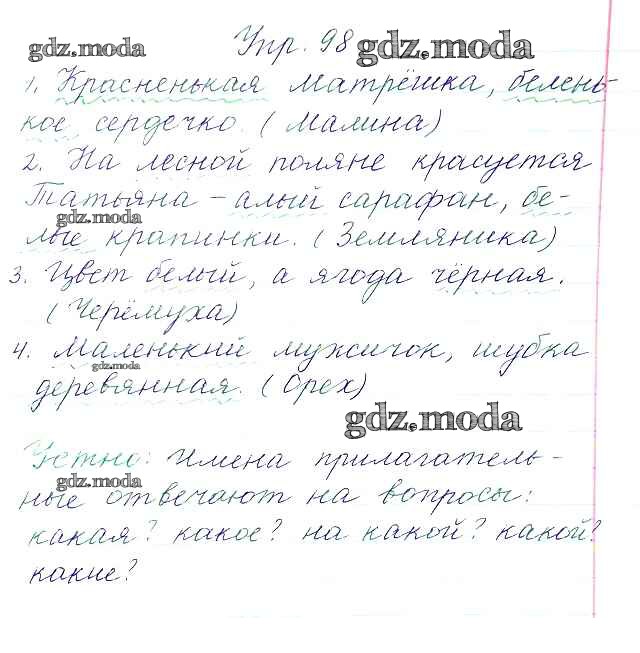 Упр. 98
gdz.moda gdz.moda
1. Красненькая матрёшка, белень-
кое сердечко. (Малина)
2. На лесной поляне красуется
Татьяна – алый сарафан, бе-
gdz.moda
лые крапинки. (Земляника)
3. Цвет белый, а ягода чёрная.
(Черёмуха)
4. Маленький мужичок, шубка
gdz.moda
деревянная. (Орех)
gdz.moda
Устно: Имена прилагатель-
gdz.moda
ные отвечают на вопросы:
какая? какое? на какой? какой?
какие?